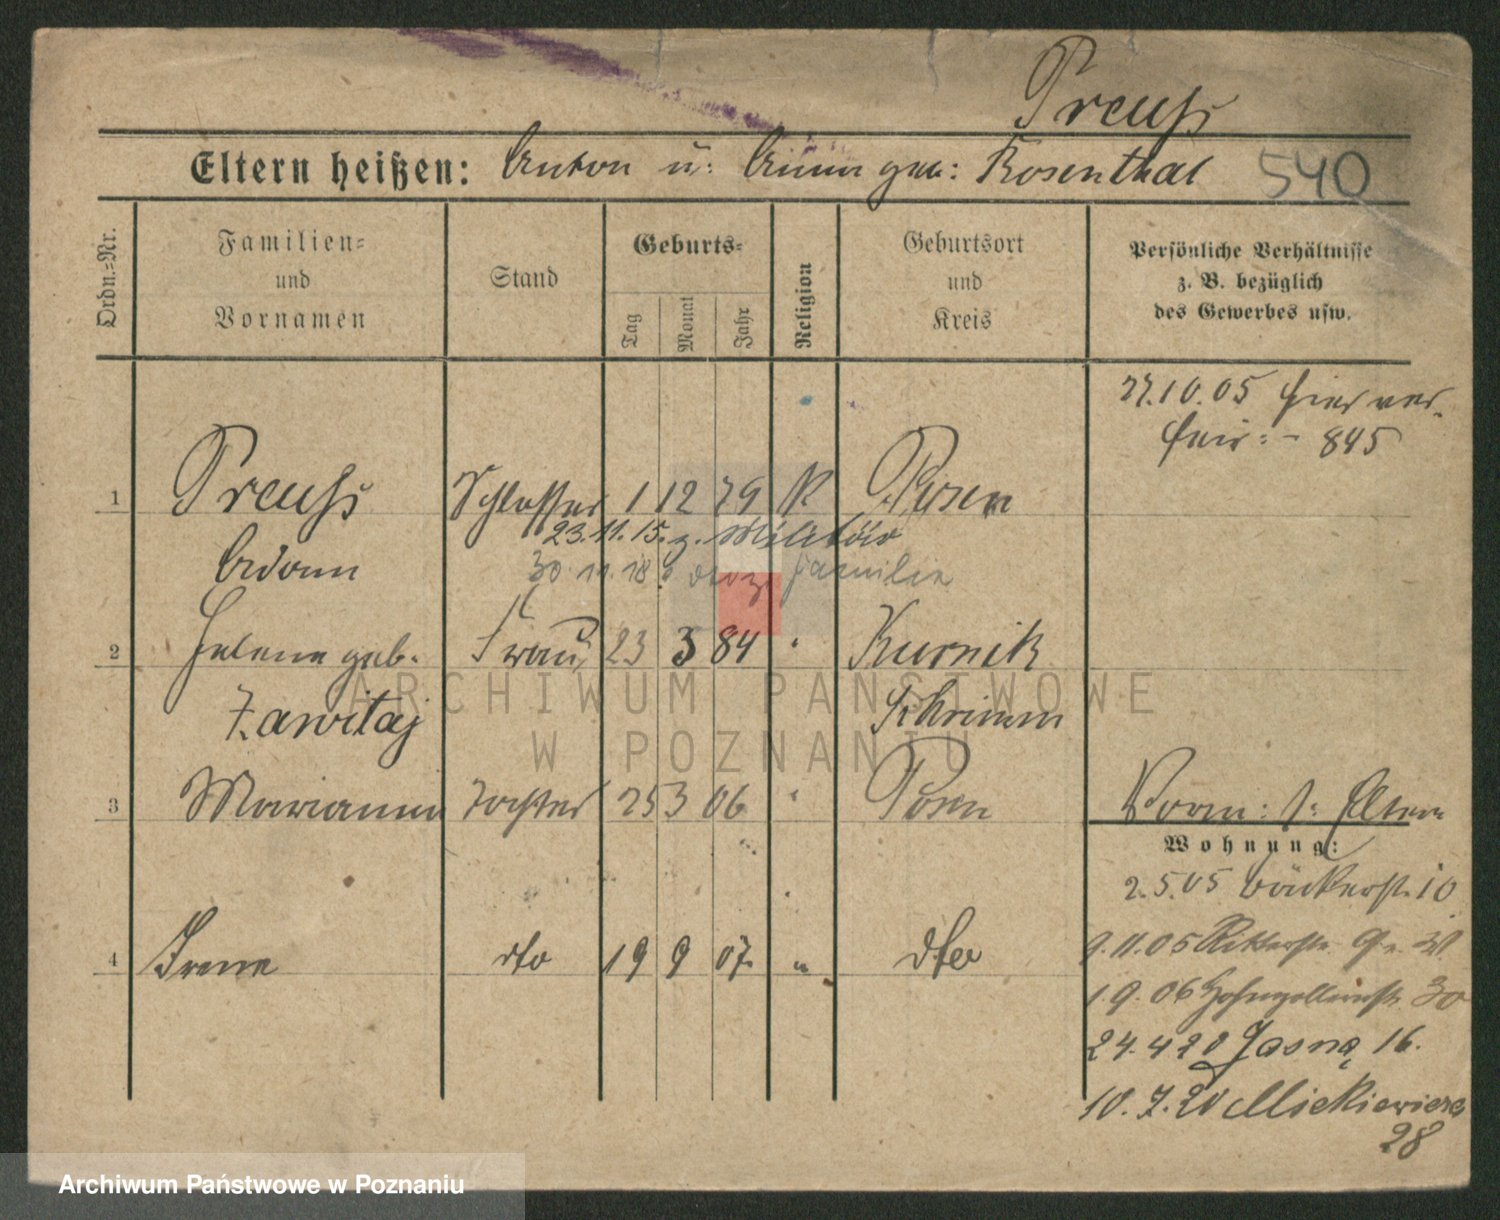 Preuß
Eltern heißen: Anton u: Anna geb: Rosenthal 540
Ordn.=Nr.
Familien=
und
Vornamen
Stand
Geburts=
Tag
Monat
Jahr
Religion
Geburtsort
und
Kreis
Persönliche Verhältnisse
z. B. bezüglich
des Gewerbes usw.
27.10.05 hier ver-
heir: - 845
1 Preuß Schlosser 1 12 79 K Posen
23.11.15. z. Militär
30 11 18 Familie
2 Helene geb. Frau 23 3 84 " Kurnik
Zawitaj Schrimm
3 Marianna Tochter 25 3 06 " Posen
Vorm: s: Eltern
Wohnung:
2.5.05 Bäckerstr. 10
9.11.05 Ritterstr. 9
4 Irene dto 19 9 07 " dto
1.9.06 Hohenzollernstr. 30
24.4 20 Jasna 16.
10.7.20 Mickiewicza
28
ARCHIWUM PAŃSTWOWE
W POZNANIU
Archiwum Państwowe w Poznaniu